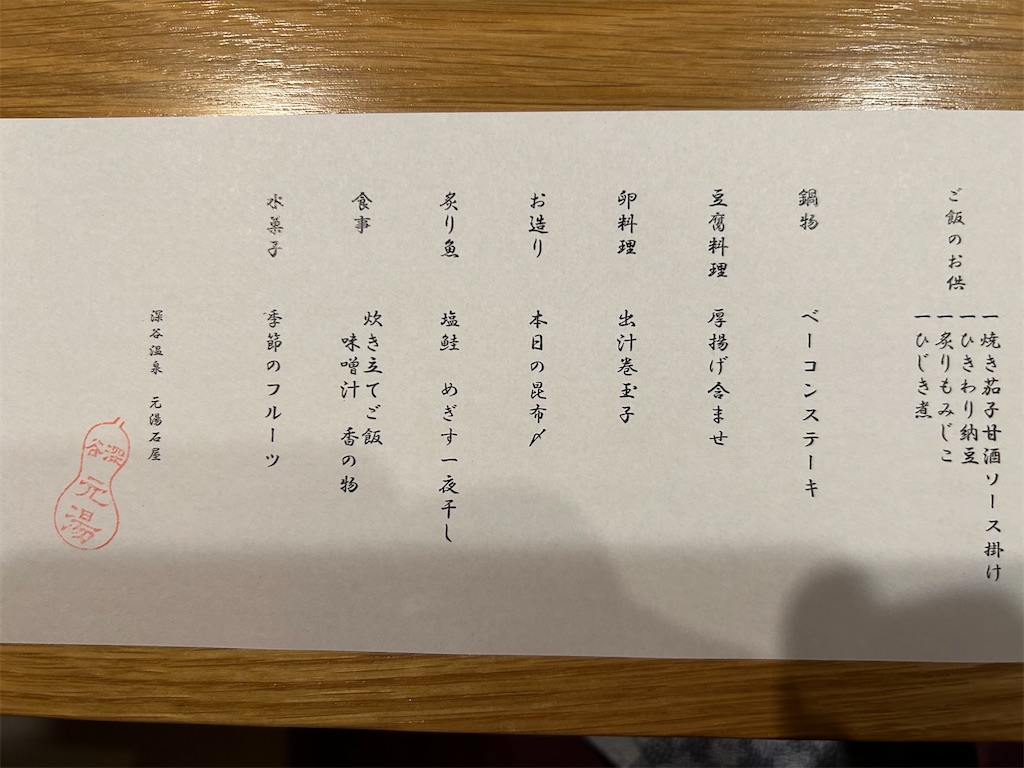 ご飯のお供
一焼き茄子甘酒ソース掛け
一ひきわり納豆
一炙りもみじこ
一ひじき煮
鍋物 ベーコンステーキ
豆腐料理 厚揚げ含ませ
卵料理 出汁巻玉子
お造り 本日の昆布〆
炙り魚 塩鮭 めぎす一夜干し
食事 炊き立てご飯
味噌汁 香の物
水菓子 季節のフルーツ
深谷温泉 元湯石屋
深谷
元湯